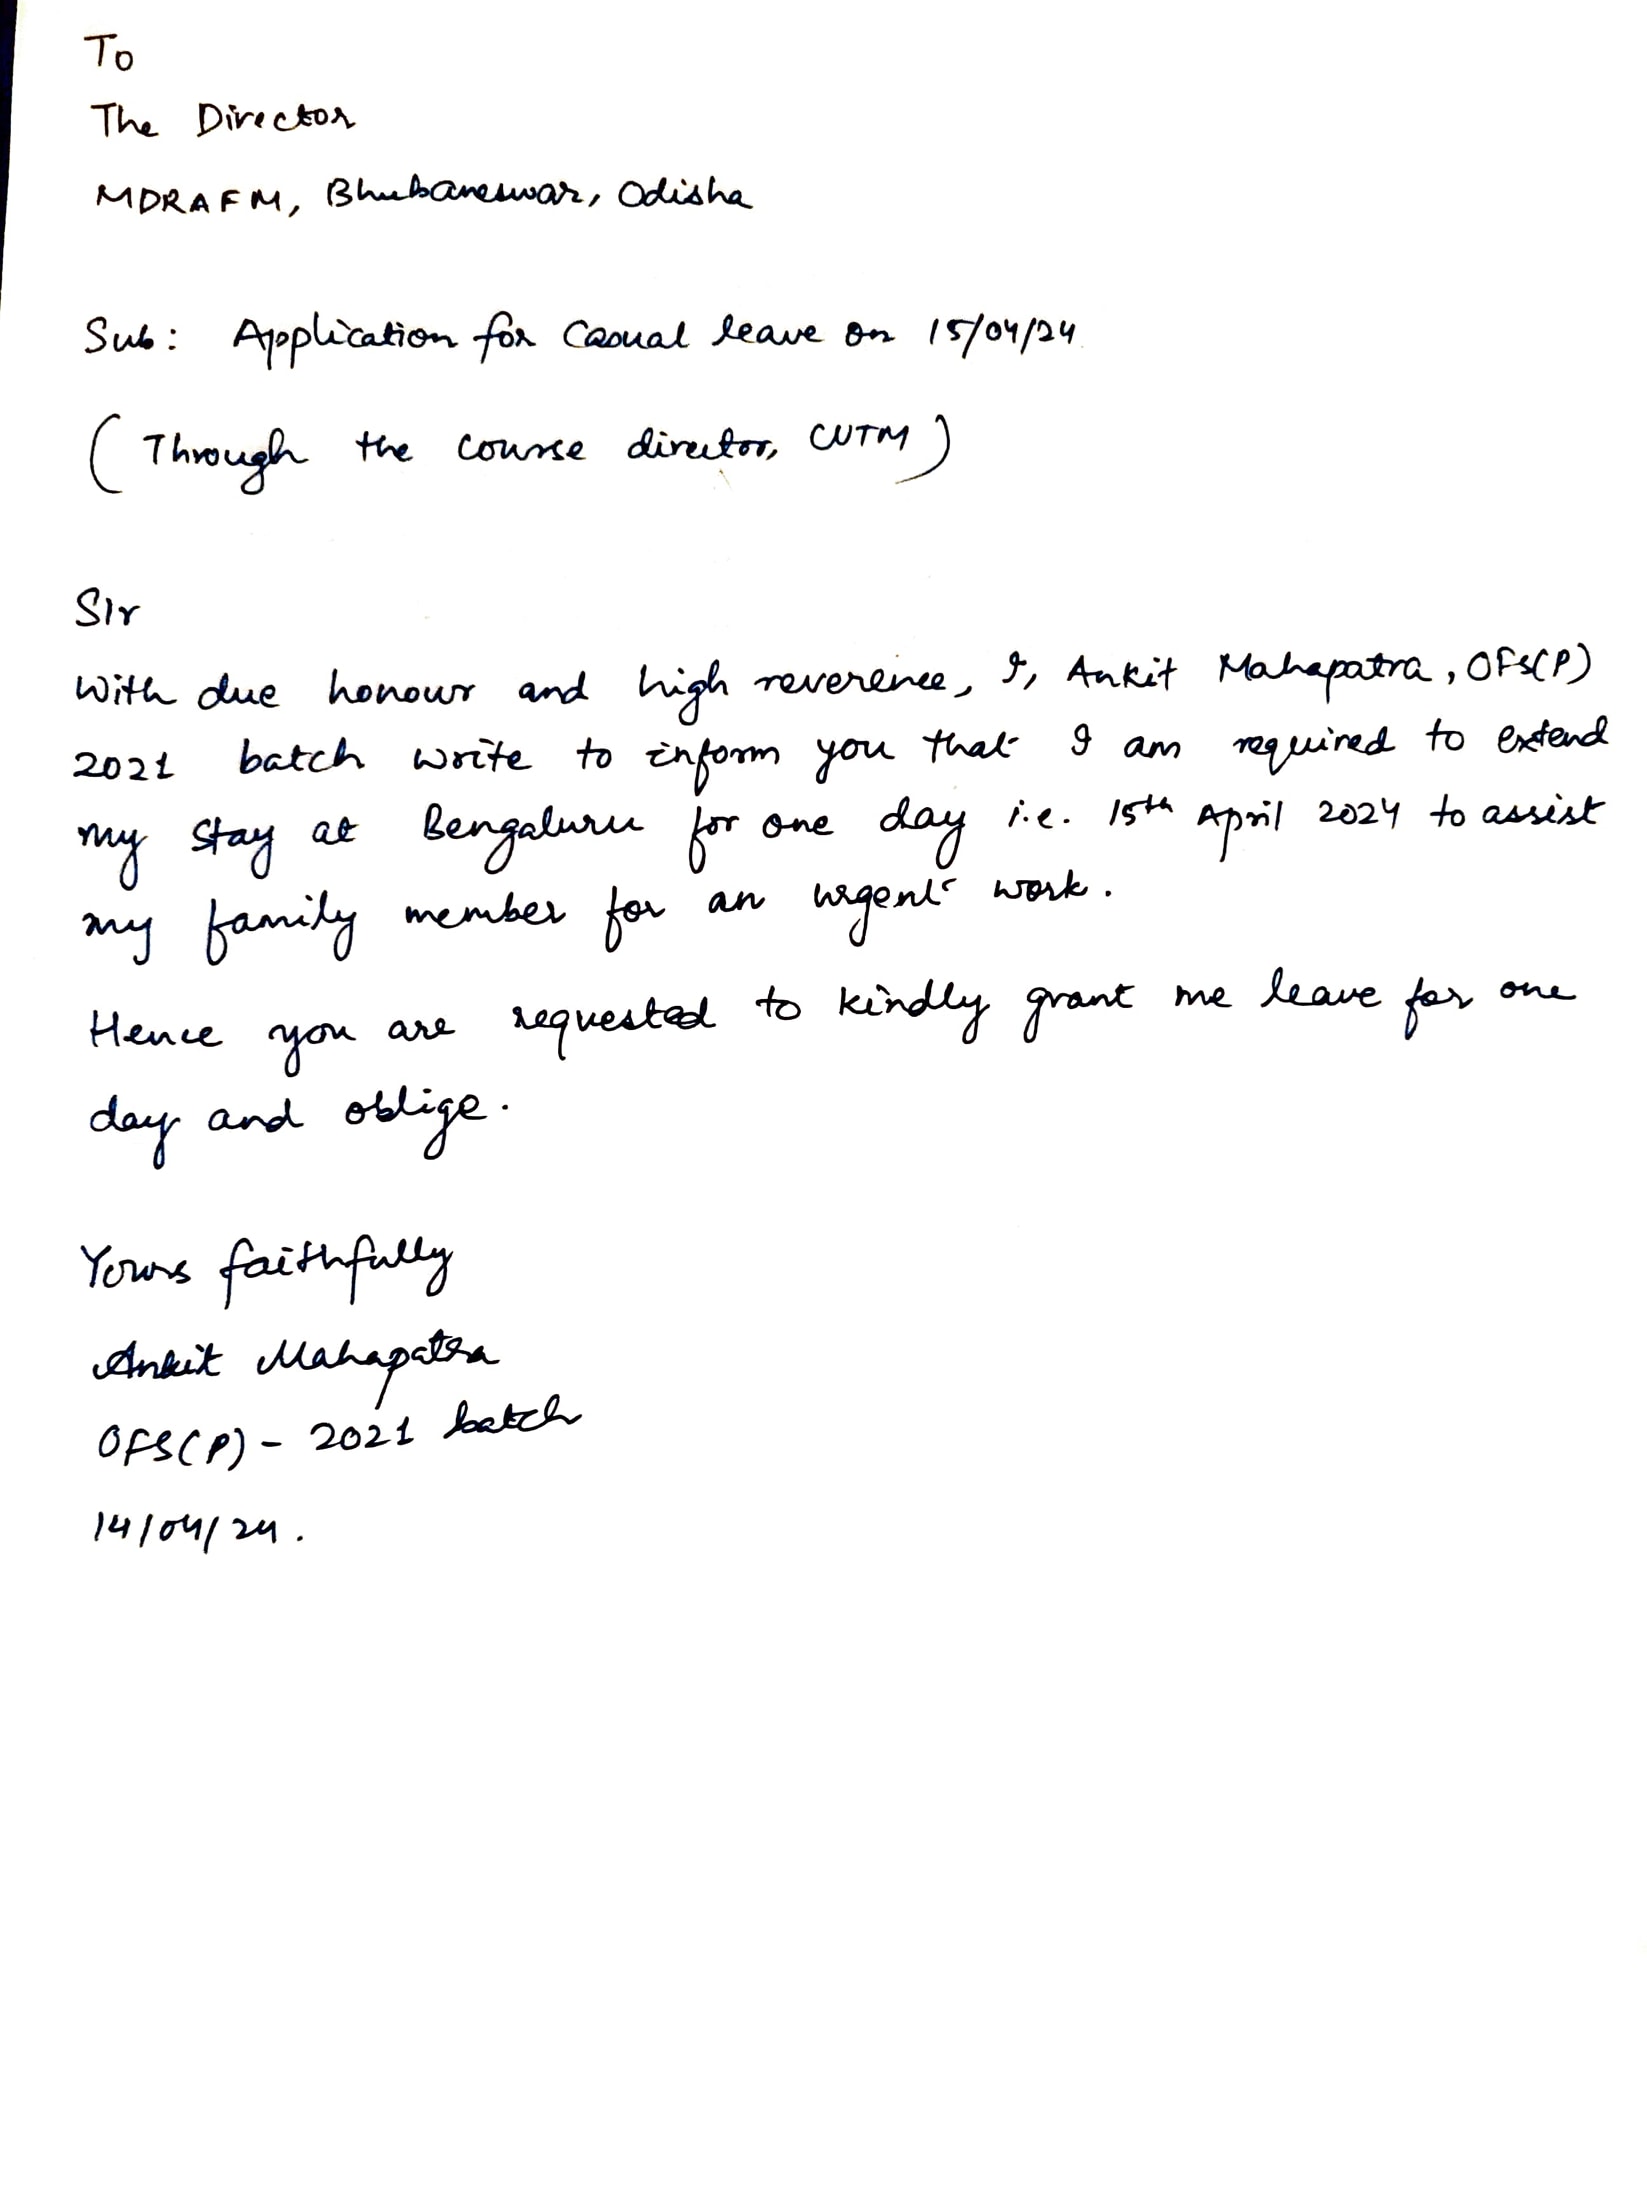 To
The Director
MDRAFM, Bhubaneswar, Odisha
Sub: Application for Casual leave on 15/04/24
(Through the course director, CUTM)
Sir
With due honour and high reverence, I, Ankit Mahapatra, OFS(P)
2021 batch write to inform you that I am required to extend
my stay at Bengaluru for one day i.e. 15th April 2024 to assist
my family member for an urgent work.
Hence you are requested to kindly grant me leave for one
day and oblige.
Yours faithfully
Ankit Mahapatra
OFS(P) - 2021 batch
14/04/24.